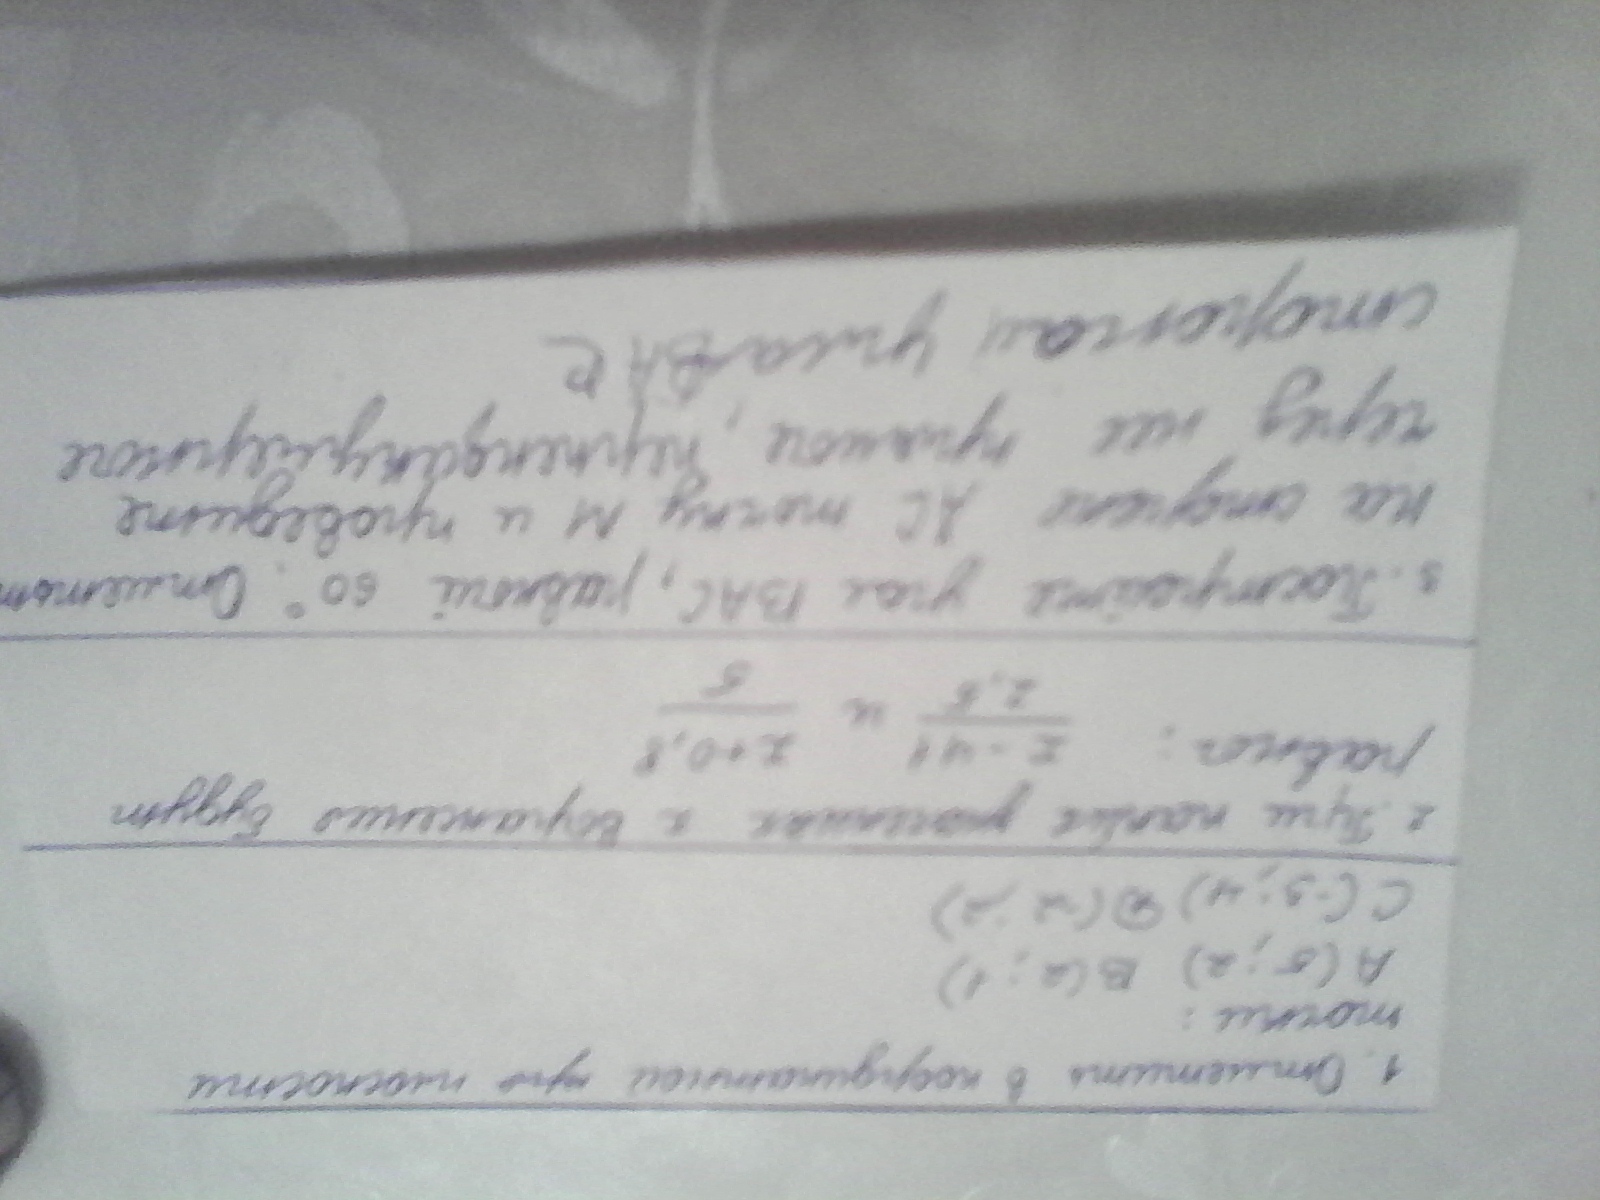 1. Отметить в координатной пло плоскости
точки:
A(5;2) B(2;1)
C(-3;4) D(-2;2)
2. При каких значениях х выражение будут
равны: x-41/2,5 и x+0,8/5
3. Постройте угол BAC, равный 60°. Отметьте
на стороне AC точку M и проведите
через нее прямые, перпендикулярные
сторонам угла BAC